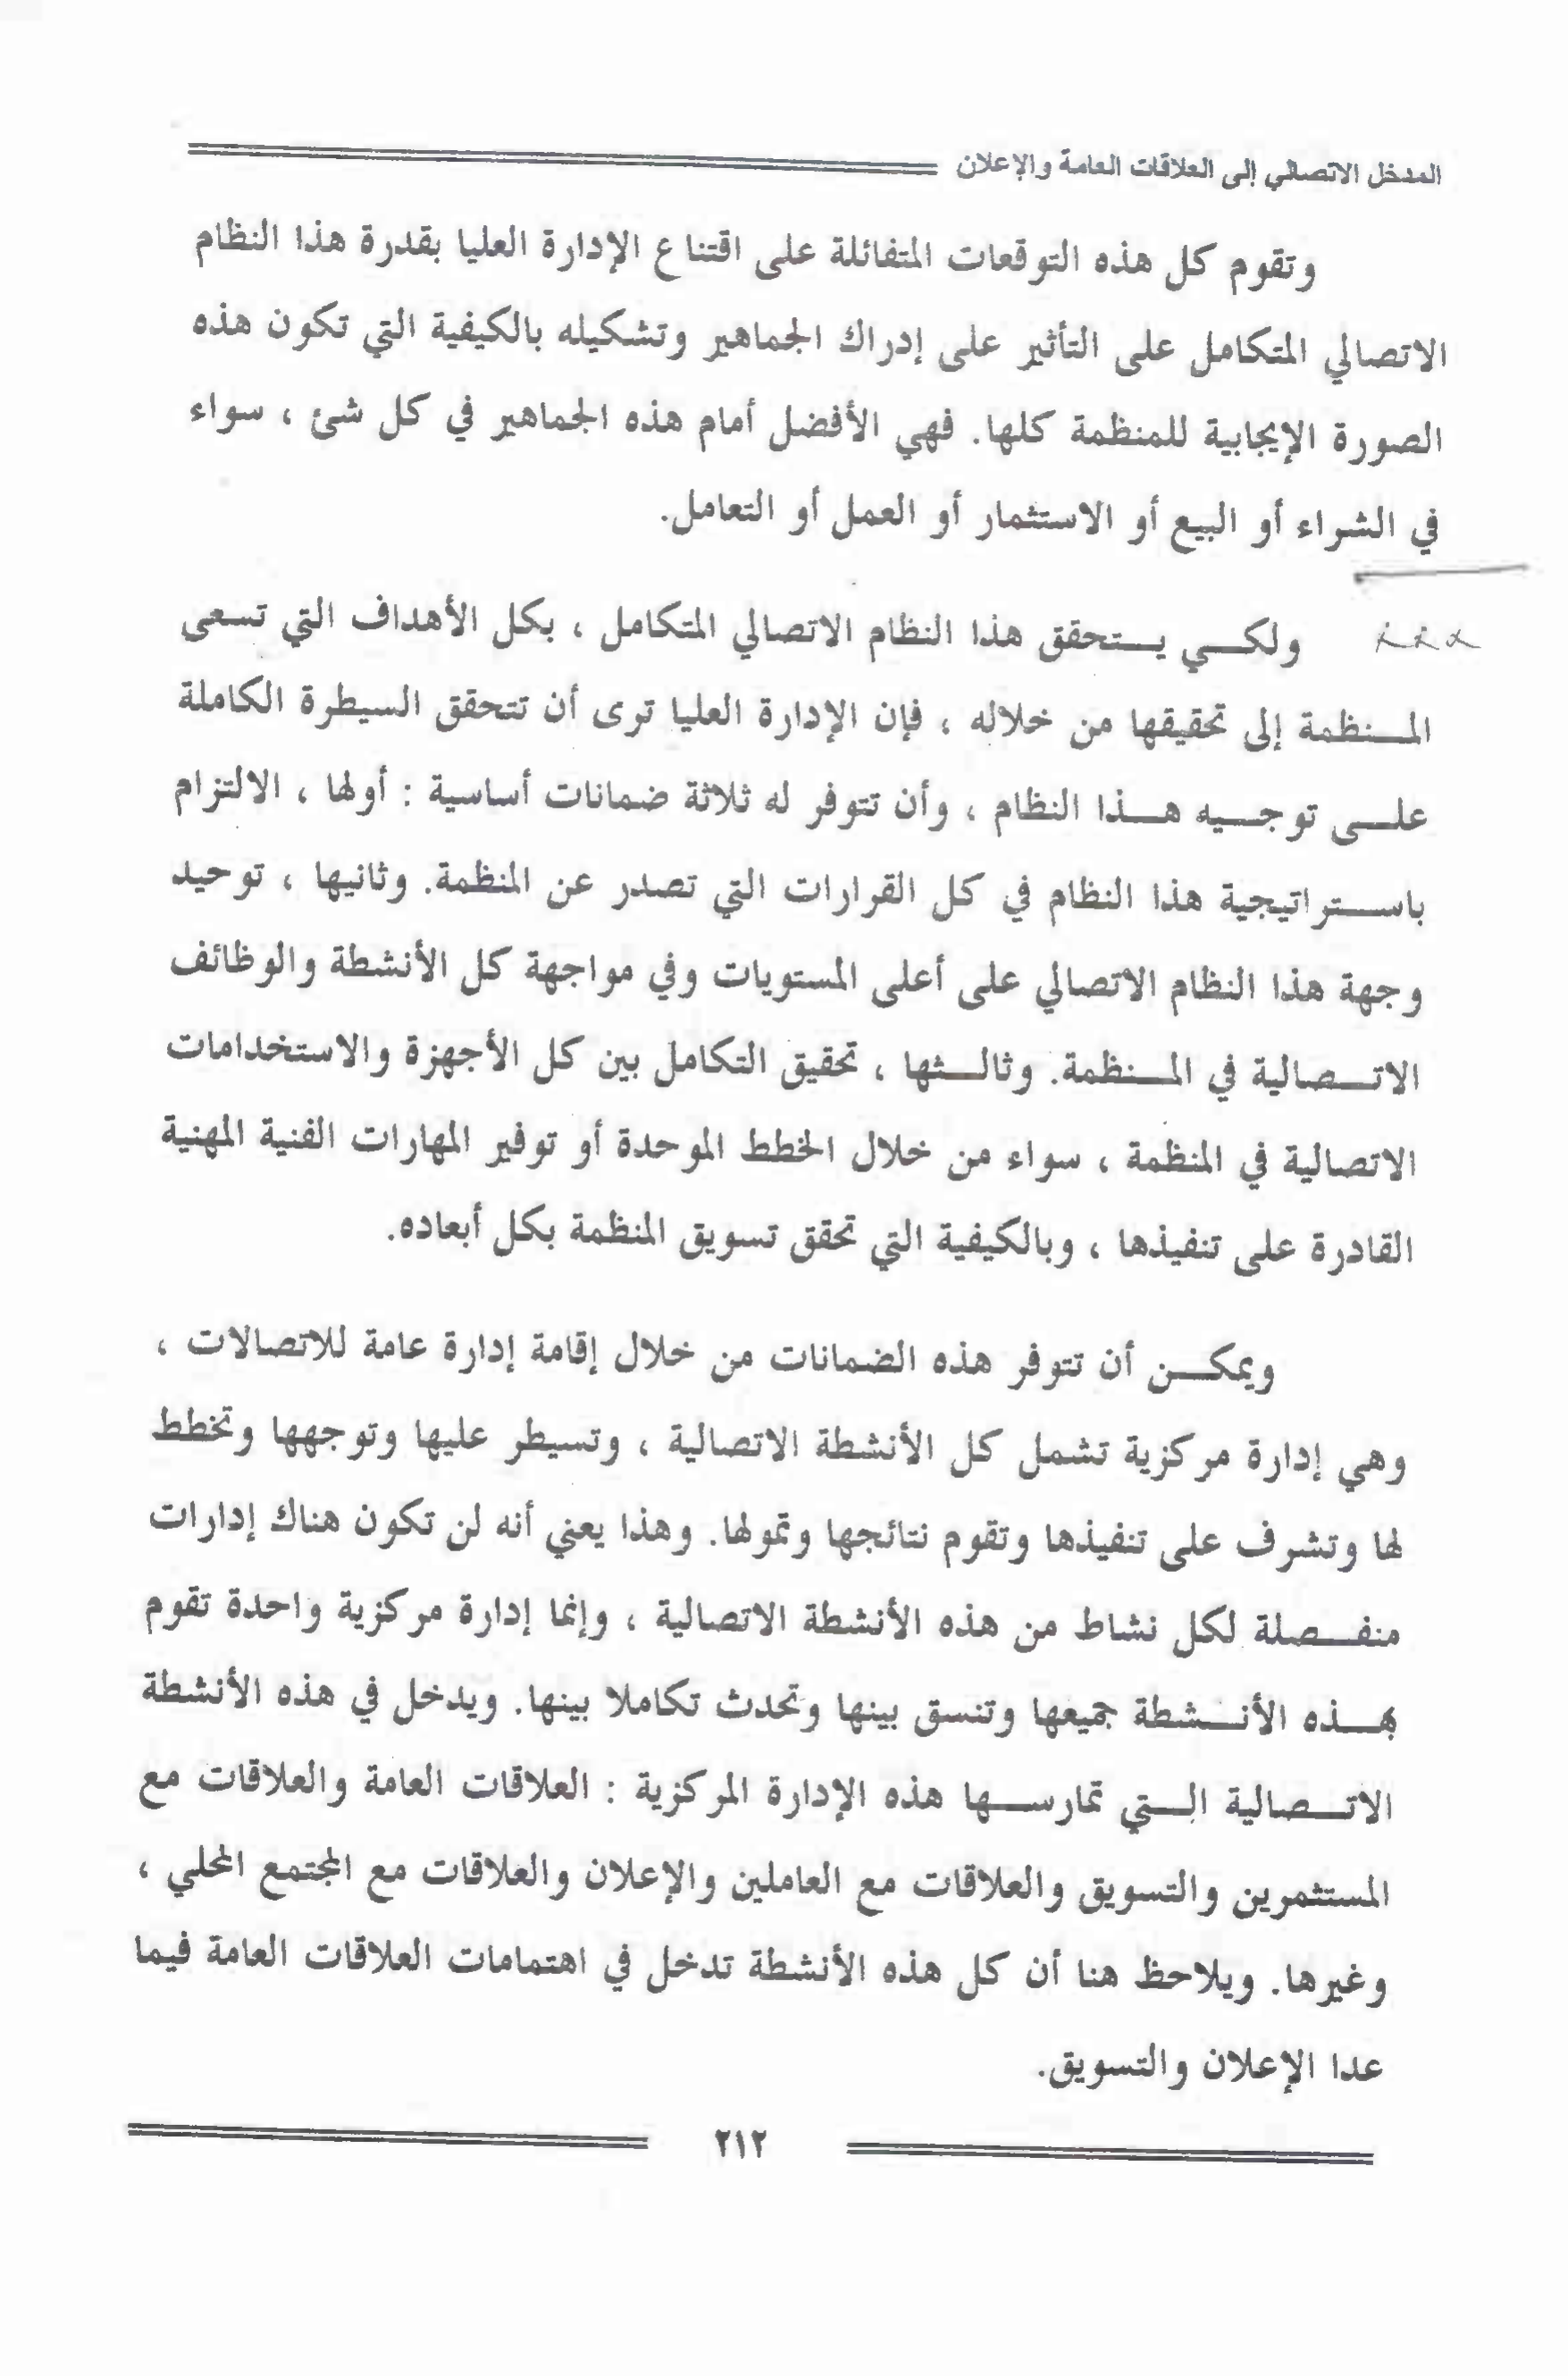 المدخل الاتصالي إلى العلاقات العامة والإعلان
وتقوم كل هذه التوقعات المتفائلة على اقتناع الإدارة العليا بقدرة هذا النظام
الاتصالي المتكامل على التأثير على إدراك الجماهير وتشكيله بالكيفية التي تكون هذه
الصورة الإيجابية للمنظمة كلها. فهي الأفضل أمام هذه الجماهير في كل شئ ، سواء
في الشراء أو البيع أو الاستثمار أو العمل أو التعامل.
ولكي يتحقق هذا النظام الاتصالي المتكامل ، بكل الأهداف التي تسعى
المنظمة إلى تحقيقها من خلاله ، فإن الإدارة العليا ترى أن تتحقق السيطرة الكاملة
على توجيه هذا النظام ، وأن تتوفر له ثلاثة ضمانات أساسية : أولها ، الالتزام
باستراتيجية هذا النظام في كل القرارات التي تصدر عن المنظمة. وثانيها ، توحيد
وجهة هذا النظام الاتصالي على أعلى المستويات وفي مواجهة كل الأنشطة والوظائف
الاتصالية في المنظمة. وثالثها ، تحقيق التكامل بين كل الأجهزة والاستخدامات
الاتصالية في المنظمة ، سواء من خلال الخطط الموحدة أو توفير المهارات الفنية المهنية
القادرة على تنفيذها ، وبالكيفية التي تحقق تسويق المنظمة بكل أبعاده.
ويمكن أن تتوفر هذه الضمانات من خلال إقامة إدارة عامة للاتصالات ،
وهي إدارة مركزية تشمل كل الأنشطة الاتصالية ، وتسيطر عليها وتوجهها وتخطط
لها وتشرف على تنفيذها وتقوم نتائجها وتمولها. وهذا يعني أنه لن تكون هناك إدارات
منفصلة لكل نشاط من هذه الأنشطة الاتصالية ، وإنما إدارة مركزية واحدة تقوم
بهذه الأنشطة جميعها وتنسق بينها وتحدث تكاملا بينها. ويدخل في هذه الأنشطة
الاتصالية التي تمارسها هذه الإدارة المركزية : العلاقات العامة والعلاقات مع
المستثمرين والتسويق والعلاقات مع العاملين والإعلان والعلاقات مع المجتمع المحلي ،
وغيرها. ويلاحظ هنا أن كل هذه الأنشطة تدخل في اهتمامات العلاقات العامة فيما
عدا الإعلان والتسويق.
٢١٢